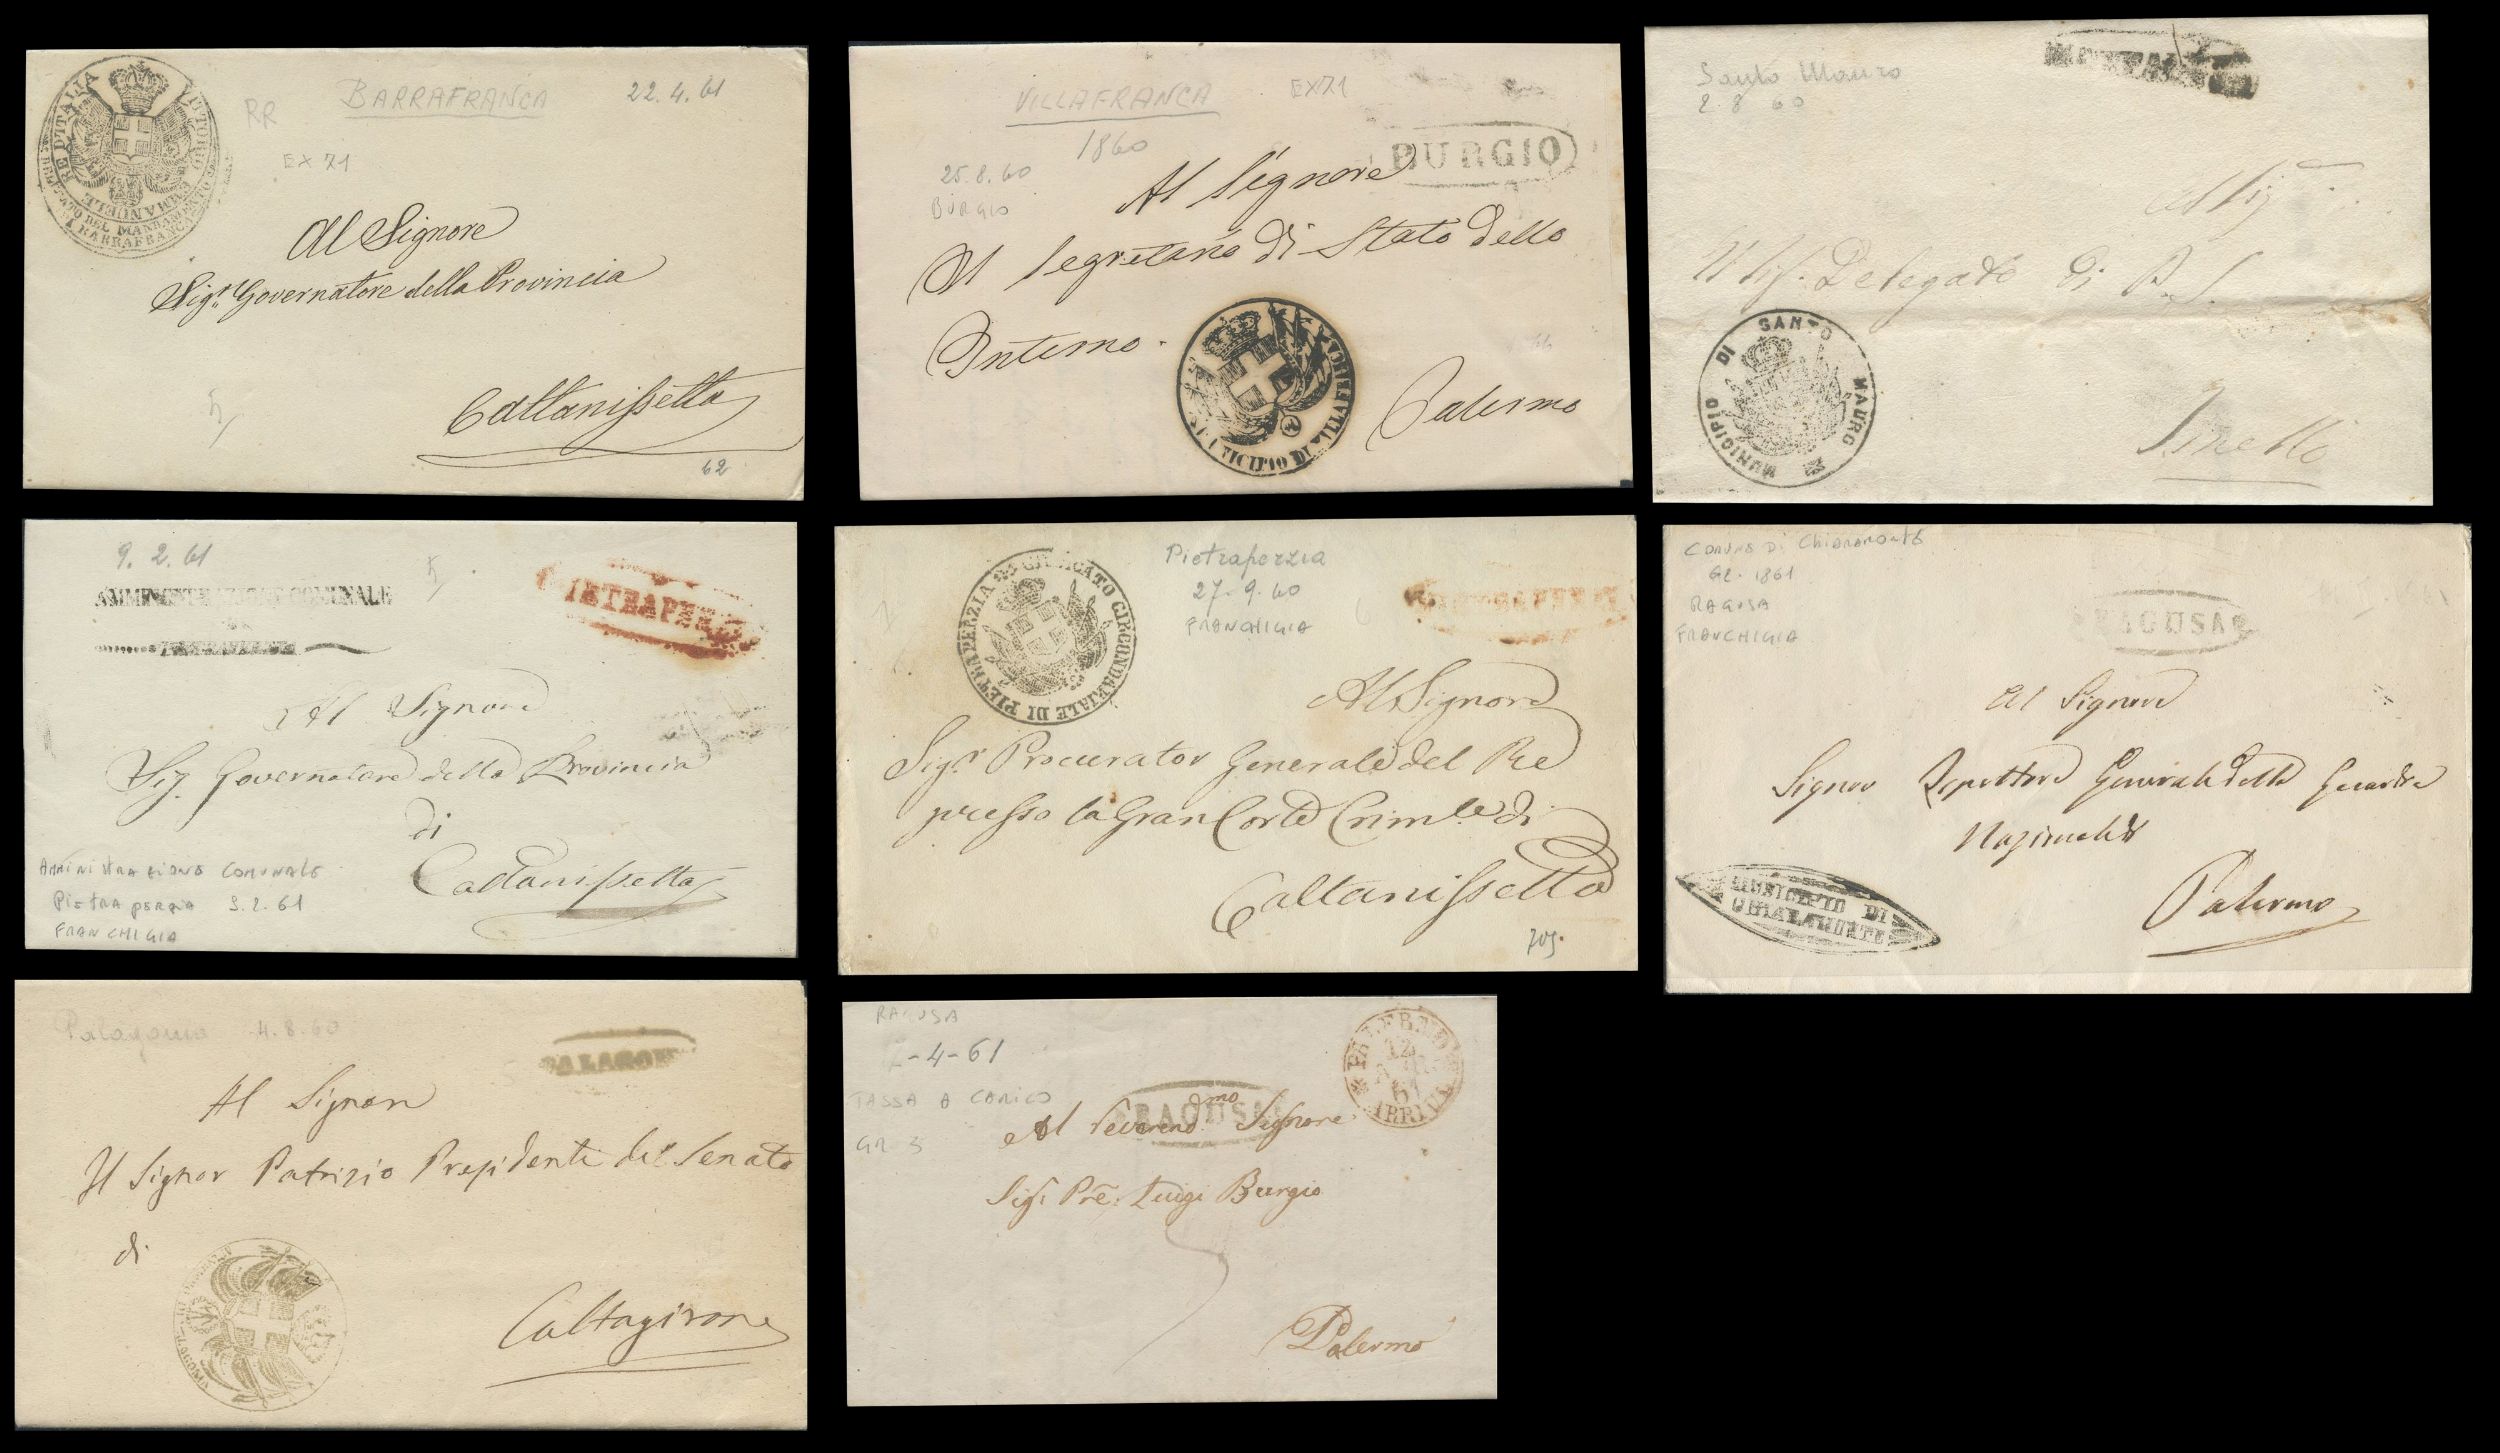 RE D'ITALIA VITTORIO
EMMANUELE
DEL MANDAMENTO
BARRAFRANCA
RR
BARRAFRANCA
22.4.61
EX 71
Al Signore
Sigr. Governatore della Provincia
Caltanissetta
62
VILLAFRANCA
EX 71
1860
25.8.60
BURGIO
BURGIO
Al Signore
Il Segretario di Stato dello
Interno.
Palermo
Santo Mauro
2 8 60
Delegato di P. S.
MUNICIPIO DI SANTO MAURO
9. 2. 61
AMMINISTRAZIONE COMUNALE
PIETRAPERZ
Al Signore
Sig. Governatore della Provincia
di
Caltanissetta
AMMINISTRAZIONE COMUNALE
PIETRAPERZIA 9.2.61
FRANCHIGIA
GIUDICATO CIRCONDARIALE DI PIETRAPERZIA
Pietraperzia
27-9.60
FRANCHIGIA
PIETRAPERZI
Al Signore
Sigr. Procurator Generale del Re
presso la Gran Corte Crimle. di
Caltanissetta
705.
COMUNE DI CHIARAMONTE
62. 1861
RAGUSA
FRANCHIGIA
RAGUSA
Al Signore
Signor Ispettore Generale della Guardia
Nazionale di
MUNICIPIO DI
CHIARAMONTE
Palermo
Palagonia 4.8.60
PALAGON
Al Signore
Il Signor Patrizio Presidente del Senato
di
Caltagirone
RAGUSA
-4-61
TASSA A CARICO
GR 5
PALERMO
12
61
ARRIVO
RAGUSA
Al Reverendmo Signore
Sigr. Pre. Luigi Burgio
Palermo